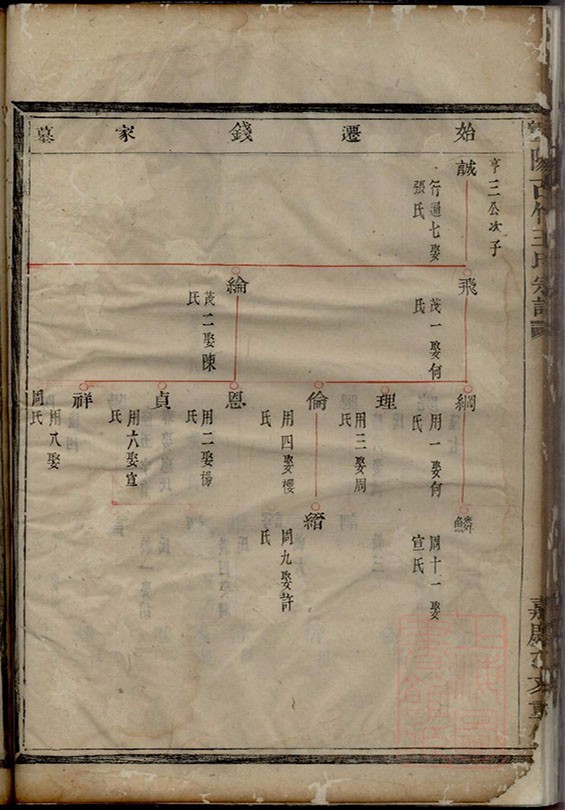 始遷錢家墓
亨三公次子
誠
行通七娶
張氏
飛
茂一娶何
氏
綸
茂二娶陳
氏
綱
用一娶何
氏
理
用三娶周
氏
倫
用四娶樓
氏
恩
用二娶楊
氏
貞
用六娶宣
氏
祥
用八娶
周氏
鱗
周十一娶
宣氏
縉
周九娶許
氏
陽古竹王氏宗譜
嘉慶
重